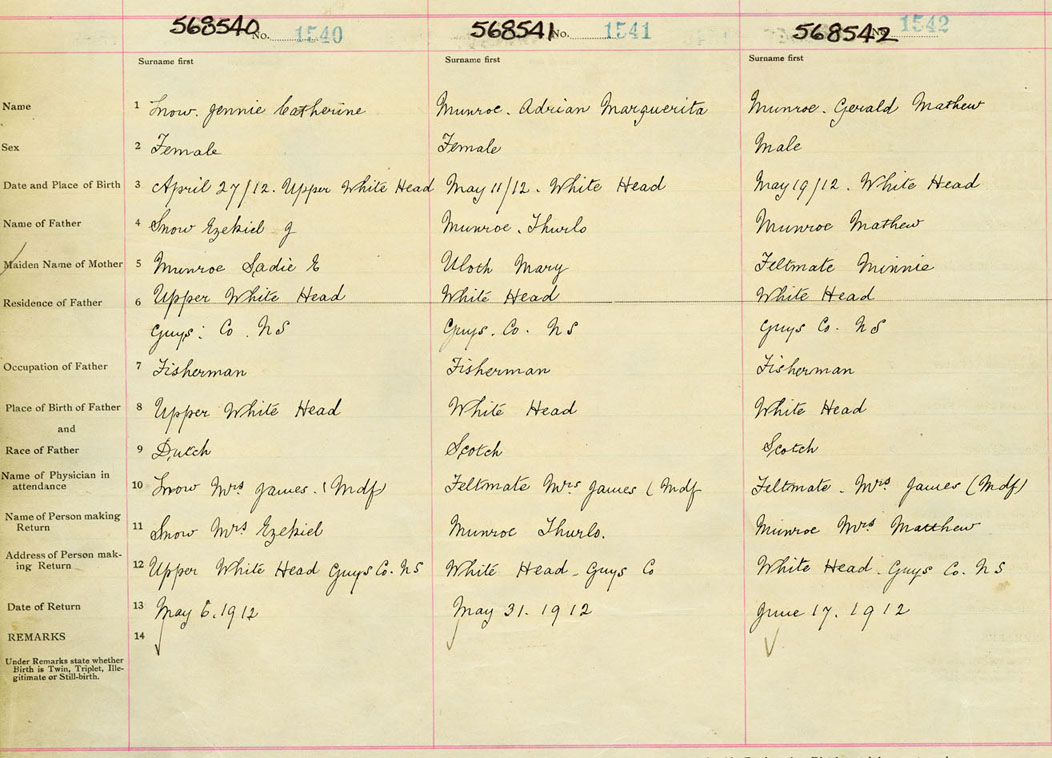 568540 No. 1540 568541 No. 1541 568542 No. 1542
Surname first Surname first Surname first
Name 1 Snow. Jennie Catherine Munroe. Adrian Marguerita Munroe. Gerald Mathew
Sex 2 Female Female Male
Date and Place of Birth 3 April 27/12. Upper White Head May 11/12. White Head May 19/12. White Head
Name of Father 4 Snow Ezekiel J Munroe. Thurlo Munroe Mathew
Maiden Name of Mother 5 Munroe Sadie E Uloth Mary Feltmate Minnie
Residence of Father 6 Upper White Head White Head White Head
Guys: Co. NS Guys. Co. NS Guys Co. NS
Occupation of Father 7 Fisherman Fisherman Fisherman
Place of Birth of Father 8 Upper White Head White Head White Head
and
Race of Father 9 Dutch Scotch Scotch
Name of Physician in
attendance 10 Snow Mrs James. (Mdf) Feltmate Mrs James (Mdf Feltmate. Mrs James (Mdf)
Name of Person making
Return 11 Snow Mrs Ezekiel Munroe Thurlo. Munroe Mrs Matthew
Address of Person mak-
ing Return 12 Upper White Head Guys Co. NS White Head - Guys Co White Head. Guys Co. NS
Date of Return 13 May 6. 1912 May 31. 1912 June 17. 1912
REMARKS 14
Under Remarks state whether
Birth is Twin, Triplet, Ille-
gitimate or Still-birth.